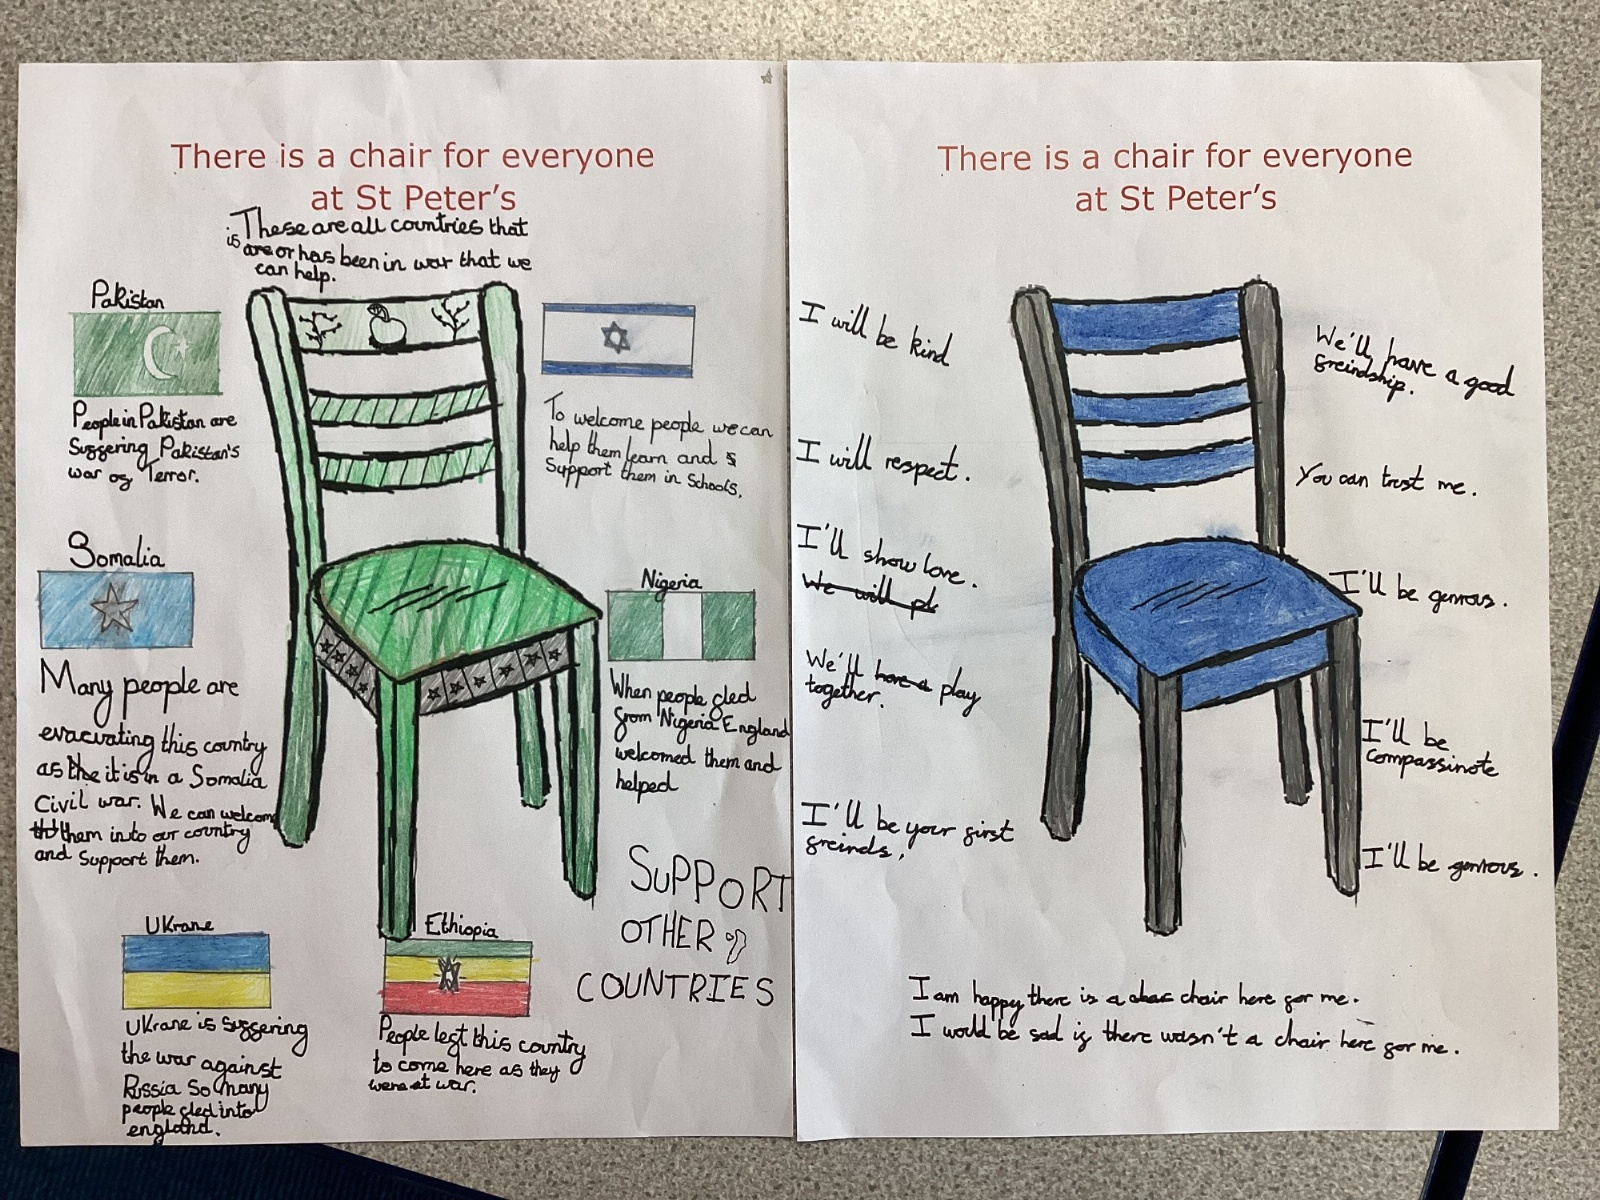 There is a chair for everyone
at St Peter's
These are all countries that
is are or has been in war that we
can help.
Pakistan
People in Pakistan are
suffering Pakistan's
war of Terror.
To welcome people we can
help them learn and s
support them in schools.
Somalia
Many people are
evacuating this country
as the it is in a Somalia
Civil war. We can welcome
them into our country
and support them.
Nigeria
When people fled
from Nigeria England
welcomed them and
helped
SUPPORT
OTHER
COUNTRIES
UKrane
UKrane is suffering
the war against
Russia so many
people fled into
england.
Ethiopia
People left this country
to come here as they
were at war.
There is a chair for everyone
at St Peter's
I will be kind
I will respect.
I'll show love.
We will pl
We'll have a play
together.
I'll be your first
freinds.
We'll have a good
freindship.
You can trust me.
I'll be genrous.
I'll be
compassinote
I'll be genrous.
I am happy there is a chair here for me.
I would be sad if there wasn't a chair here for me.